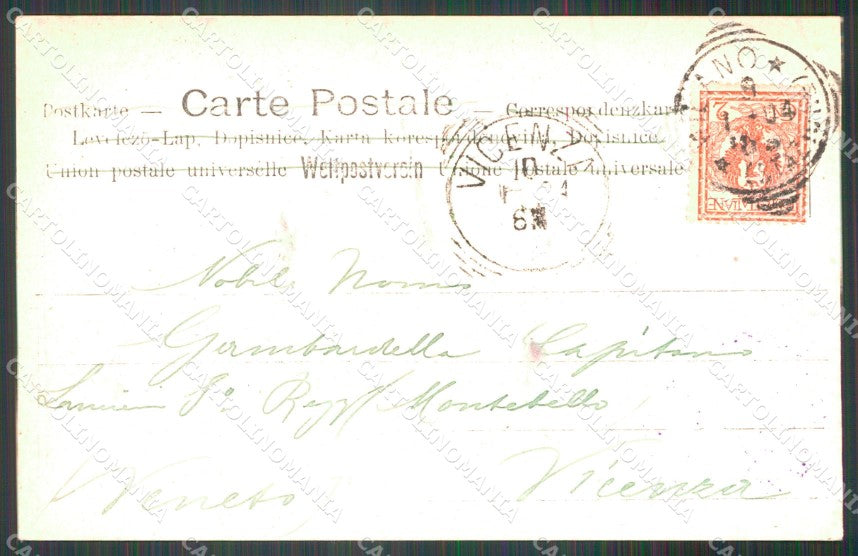 Postkarte — Carte Postale — Correspondenzkarte
Levelező-Lap, Dopisnice, Karta korespondencyina, Dopisnice,
Union postale universelle Weltpostverein Unione postale universale
VICENZA
10
MILANO
9
1 - 04
ITALIANE
2
Nobil Nomo
Gambardella Capitano
Lancieri 8º Regg Montebello
Vicenza
(Veneto)
CARTOLINOMANIA